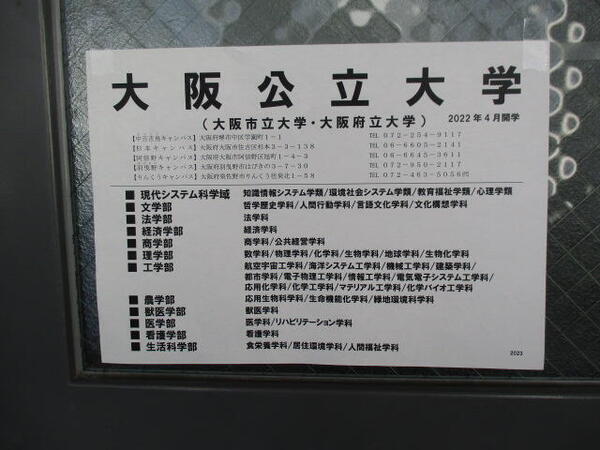 大阪公立大学
(大阪市立大学・大阪府立大学) 2022年4月開学
【中百舌鳥キャンパス】大阪府堺市中区学園町1-1 TEL 072-254-9117
【杉本キャンパス】大阪府大阪市住吉区杉本3-3-138 TEL 06-6605-2141
【阿倍野キャンパス】大阪府大阪市阿倍野区旭町1-4-3 TEL 06-6645-3611
【羽曳野キャンパス】大阪府羽曳野市はびきの3-7-30 TEL 072-950-2117
【りんくうキャンパス】大阪府泉佐野市りんくう往来北1-58 TEL 072-463-5056㈹
■ 現代システム科学域 知識情報システム学類/環境社会システム学類/教育福祉学類/心理学類
■ 文学部 哲学歴史学科/人間行動学科/言語文化学科/文化構想学科
■ 法学部 法学科
■ 経済学部 経済学科
■ 商学部 商学科/公共経営学科
■ 理学部 数学科/物理学科/化学科/生物学科/地球学科/生物化学科
■ 工学部 航空宇宙工学科/海洋システム工学科/機械工学科/建築学科/
都市学科/電子物理工学科/情報工学科/電気電子システム工学科/
応用化学科/化学工学科/マテリアル工学科/化学バイオ工学科
■ 農学部 応用生物科学科/生命機能化学科/緑地環境科学科
■ 獣医学部 獣医学科
■ 医学部 医学科/リハビリテーション学科
■ 看護学部 看護学科
■ 生活科学部 食栄養学科/居住環境学科/人間福祉学科
2023